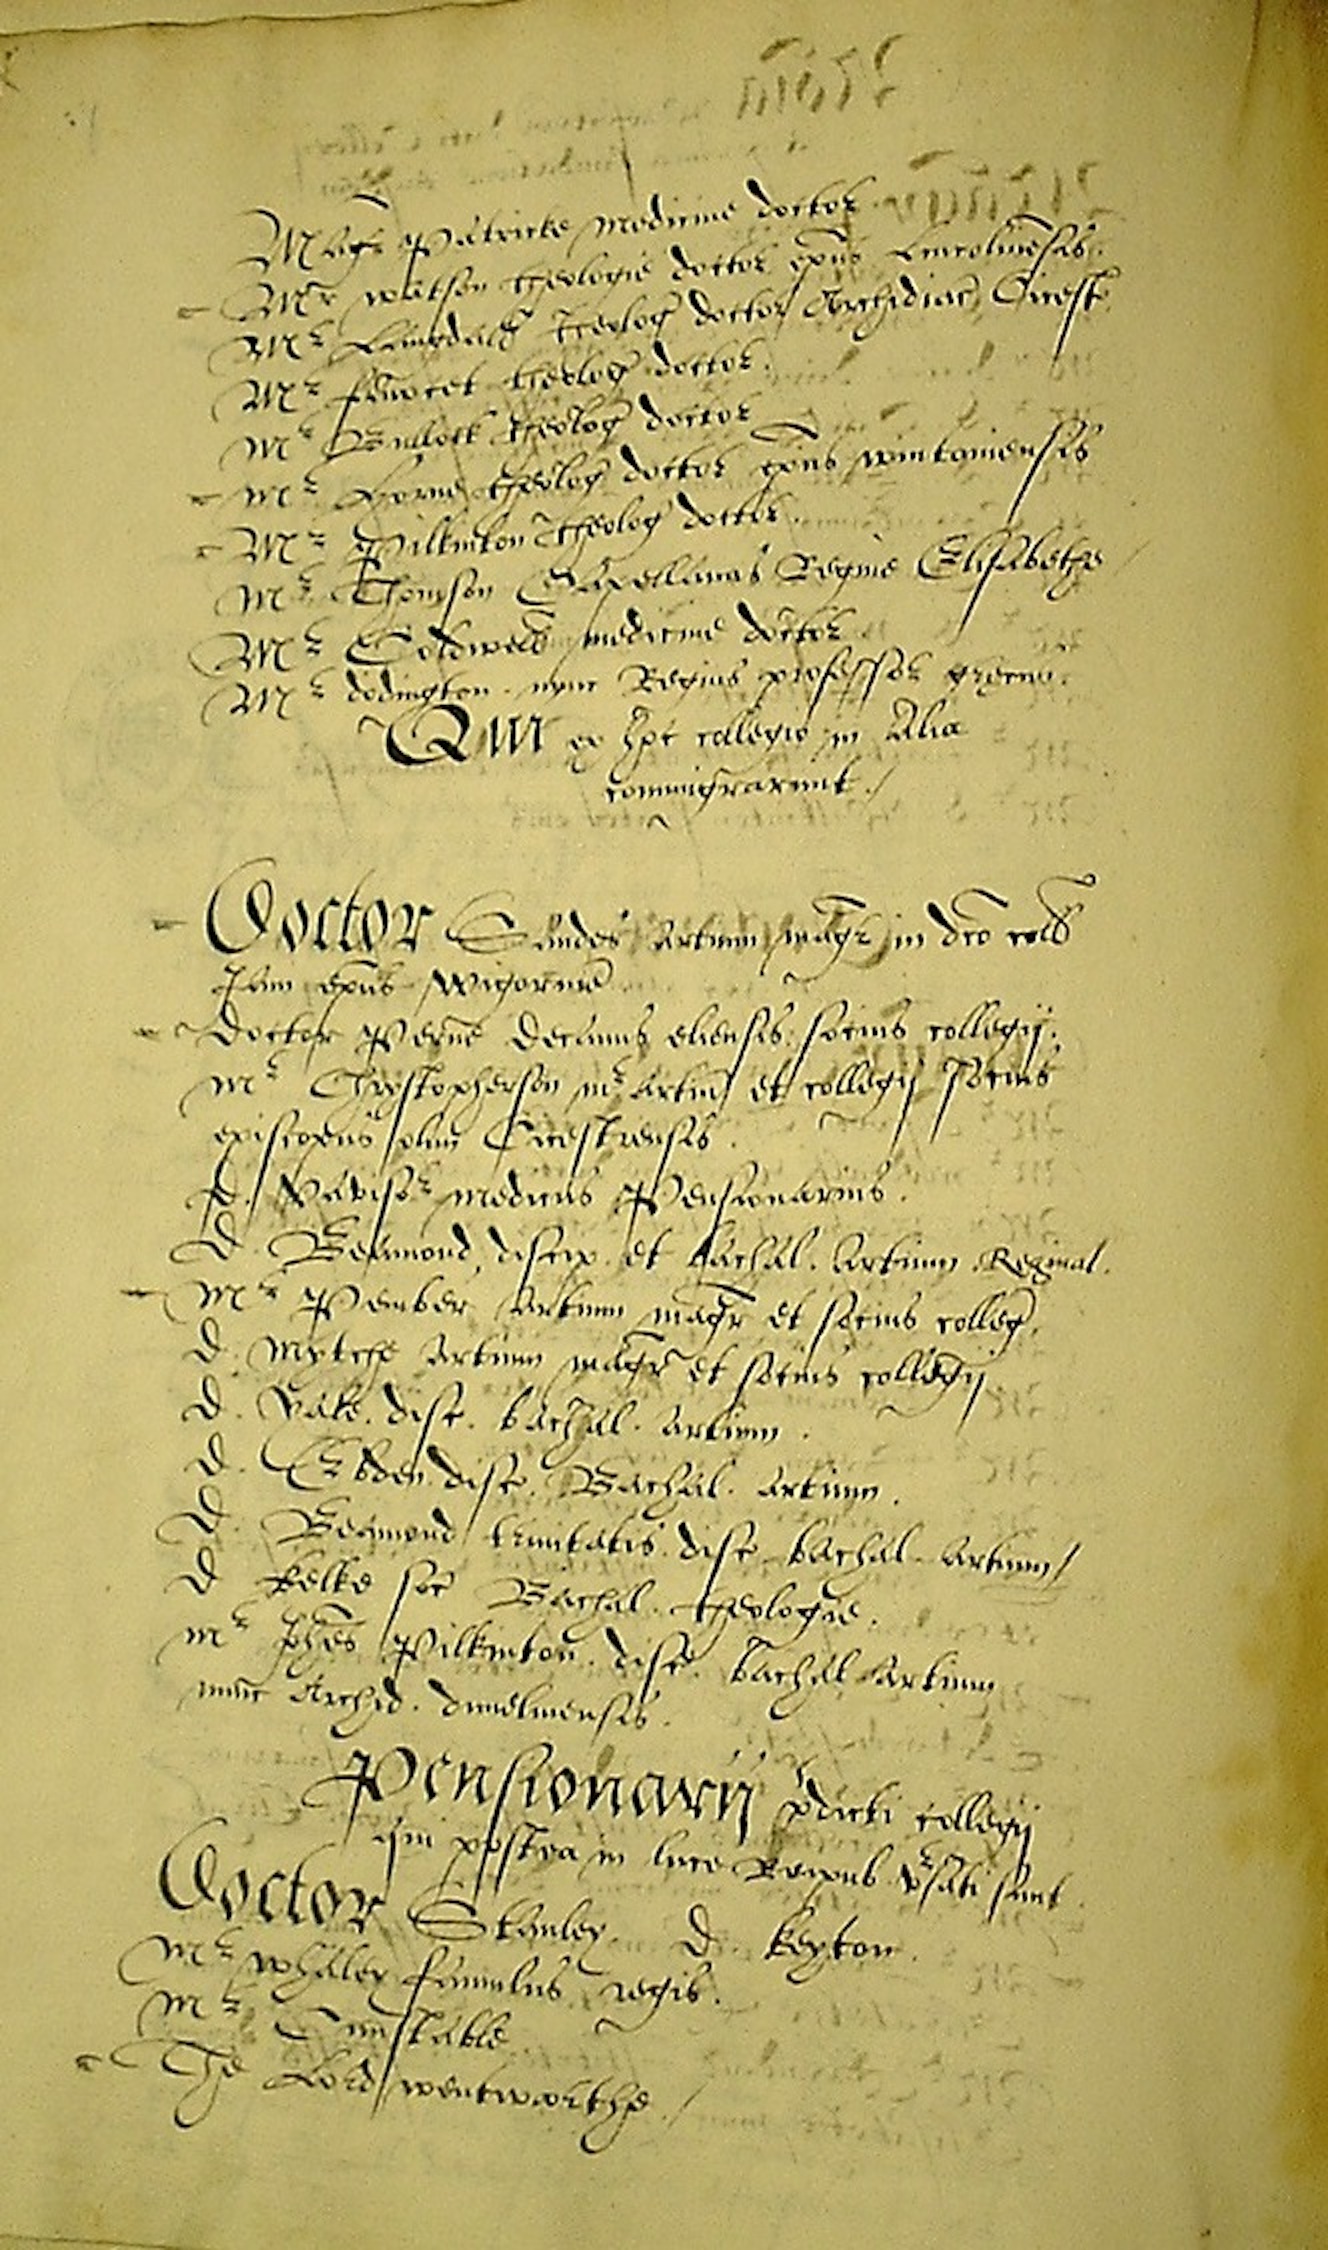 Magr Patricke medicine doctor
Mr watson theologie doctor epūs Lincolniēsis.
Mr Langdale Theolog doctor Archidiac Cicest
Mr theolog doctor.
Mr Bullock theolog doctor
Mr Horne theolog doctor epūs wintoniensis
Mr Pilkinton Theolog doctor.
Mr Thomson Capellanus Regine Elisabethe
Mr Coldwell medicine doctor
Mr dodington nunc Regius professor grecus.
Qui ex hoc collegio in Alia
commigrarunt./
Doctor Sandes Artium magr in dco coll
Jam epūs Wigornie
Doctor Perne Decanus eliensis socius collegij.
Mr Chrystopherson mr Artiū et collegij socius
episcopus olim Cicestrensis.
D. medicus Pensionarius.
D. Beamond discip. et bachal. Artium Reginal.
Mr Pember Artium magr et socius colleg.
D. Mytche Artium magr et socius collegij
D. disc. bachal. Artium.
D. Ebden disc. Bachal. Artium.
D. Beamond trinitatis disc bachal. Artium/
D Kelke soc Bachal. theologie.
Mr Johēs Pilkinton. disc. bachal Artium
nunc Archid. dunelmensis.
Pensionarij pdicti collegij
qui postea in luce Reipub. sunt
Doctor Stanley. D. Keyton.
Mr Whalley famulus regis.
Mr Cunstable
The Lord wentworthe./